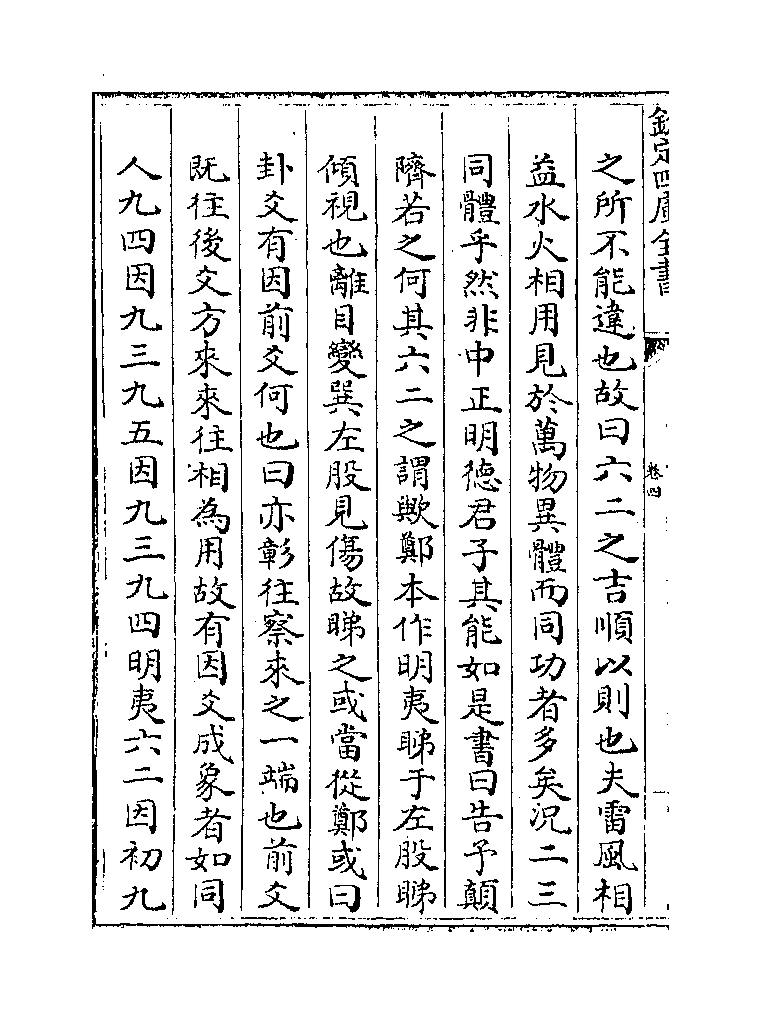 欽定四庫全書
卷四
之所不能違也故曰六二之吉順以則也夫雷風相
益水火相用見於萬物異體而同功者多矣況二三
同體乎然非中正明德君子其能如是書曰告予顛
隮若之何其六二之謂歟鄭本作明夷睇于左股睇
傾視也離目變巽左股見傷故睇之或當從鄭或曰
卦爻有因前爻何也曰亦彰往察來之一端也前爻
既往後爻方來來往相為用故有因爻成象者如同
人九四因九三九五因九三九四明夷六二因初九